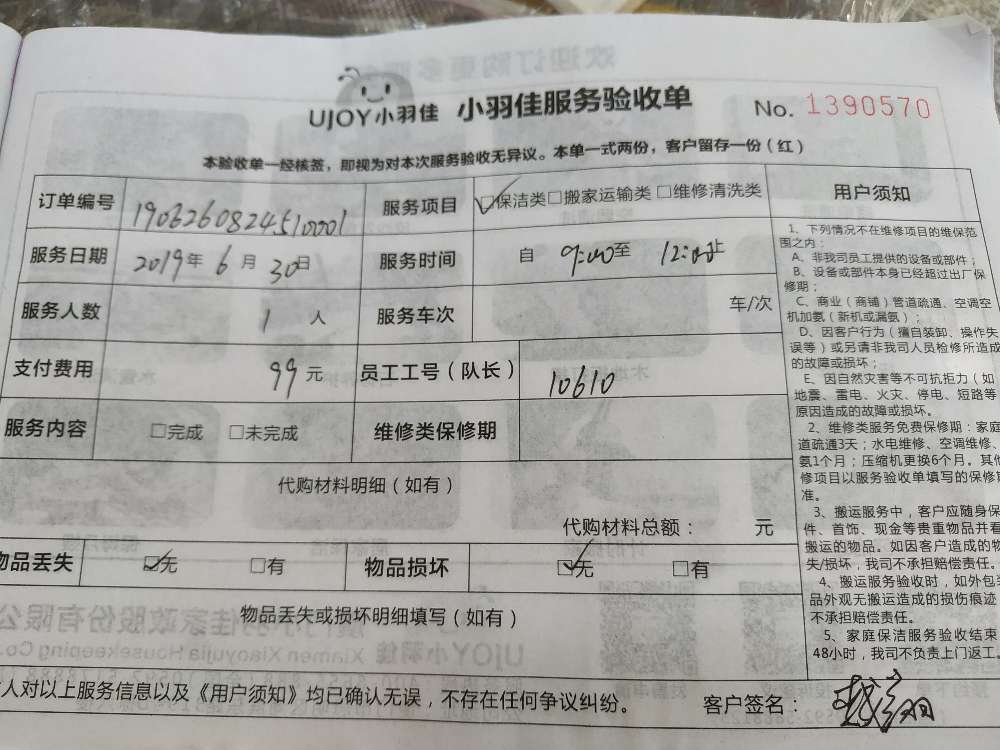 UJOY小羽佳 小羽佳服务验收单 No. 1390570
本验收单一经核签，即视为对本次服务验收无异议。本单一式两份，客户留存一份（红）
订单编号 1906260824510001 服务项目 ☑保洁类□搬家运输类□维修清洗类
服务日期 2019年6月30日 服务时间 自 9:00至 12:00止
服务人数 1人 服务车次 车/次
支付费用 99元 员工工号（队长） 10610
服务内容 □完成 □未完成 维修类保修期
代购材料明细（如有）
代购材料总额： 元
物品丢失 ☑无 □有 物品损坏 ☑无 □有
物品丢失或损坏明细填写（如有）
人对以上服务信息以及《用户须知》均已确认无误，不存在任何争议纠纷。 客户签名：
用户须知
1、下列情况不在维修项目的维保范
围之内：
A、非我司员工提供的设备或部件；
B、设备或部件本身已经超过出厂保
修期；
C、商业（商铺）管道疏通、空调空
机加氨（新机或漏氨）；
D、因客户行为（擅自装卸、操作失
误等）或另请非我司人员检修所造成
的故障或损坏；
E、因自然灾害等不可抗拒力（如
地震、雷电、火灾、停电、短路等
原因造成的故障或损坏。
2、维修类服务免费保修期：家庭
道疏通3天；水电维修、空调维修、
氨1个月；压缩机更换6个月。其他
修项目以服务验收单填写的保修期
准。
3、搬运服务中，客户应随身保
件、首饰、现金等贵重物品并看
搬运的物品。如因客户造成的物
失/损坏，我司不承担赔偿责任。
4、搬运服务验收时，如外包装
品外观无搬运造成的损伤痕迹
不承担赔偿责任。
5、家庭保洁服务验收结束
48小时，我司不负责上门返工。